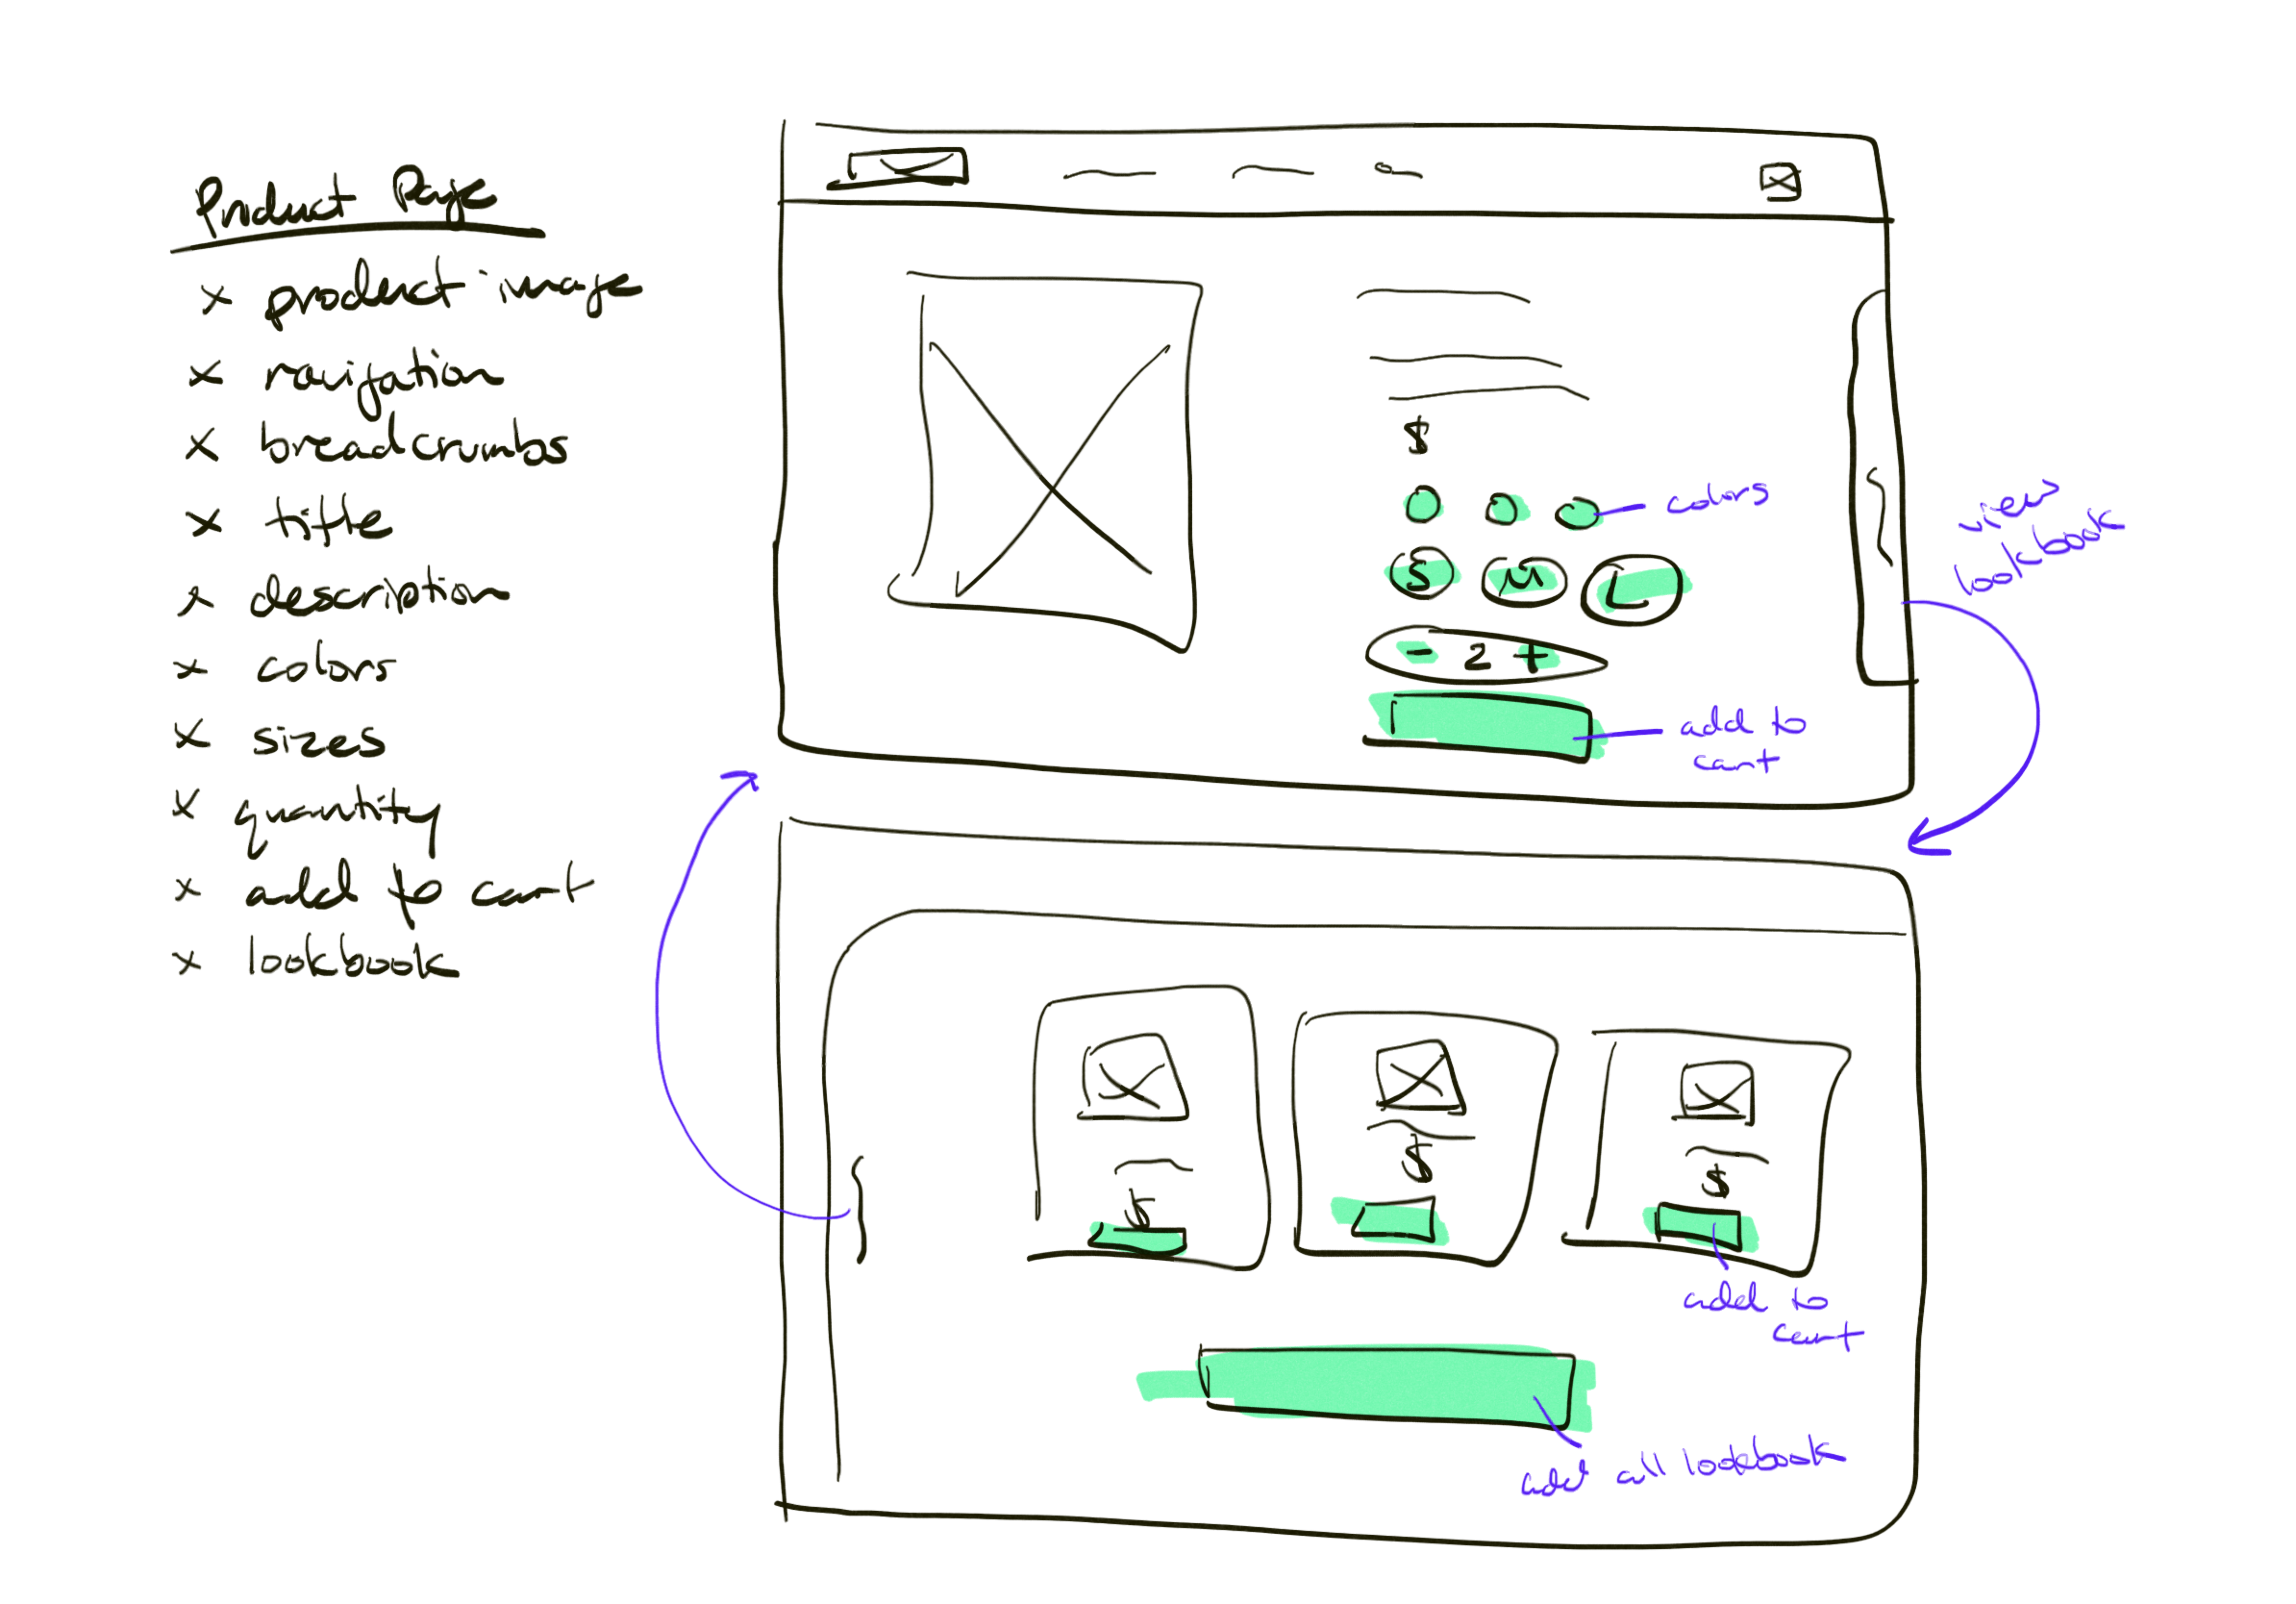 Product Page
x product image
x navigation
x breadcrumbs
x title
x description
x colors
x sizes
x quantity
x add to cart
x lookbook
$
colors
S M L
- 2 +
add to
cart
view
lookbook
$ $ $
add to
cart
add all lookbook